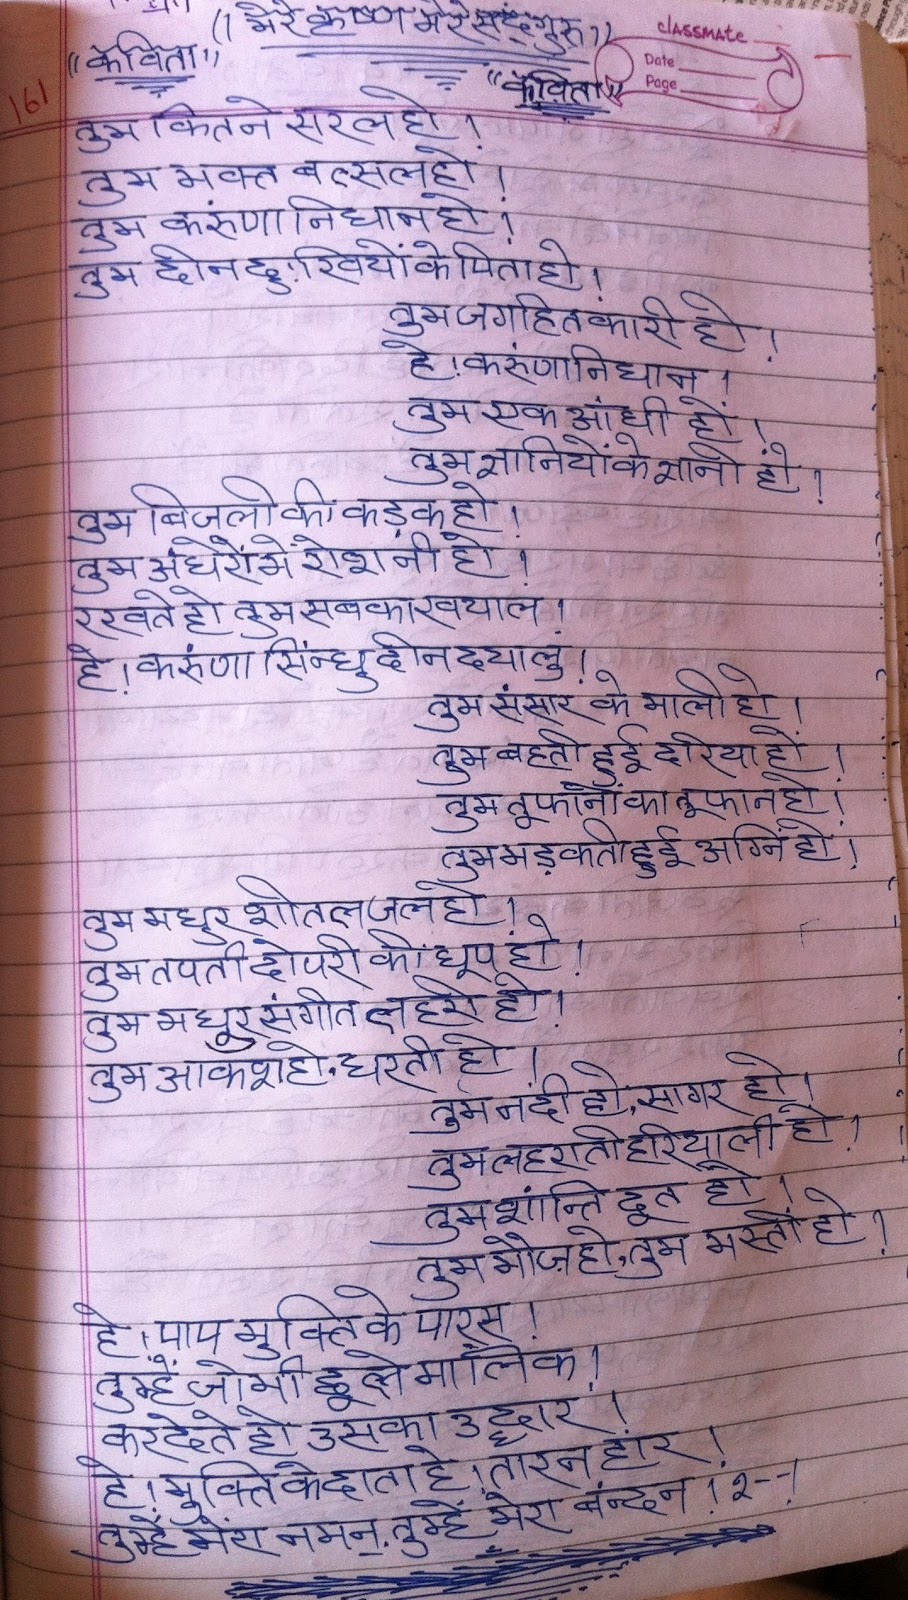 ।। मेरे कृष्ण मेरे सद्गुरु ।।
classmate
Date
Page
"कविता"
"कविता"
161
तुम कितने सरल हो ।
तुम भक्त वत्सल हो ।
तुम करुंणा निधान हो ।
तुम दीन दुःखियों के पिता हो ।
तुम जगहितकारी हो ।
हे । करुंणा निधान ।
तुम एक आंधी हों ।
तुम ज्ञानियों के ज्ञानी हो ।
तुम बिजली की कड़क हो ।
तुम अंधेरों में रोशनी हो ।
रखते हो तुम सबका ख्याल ।
हे । करुंणा सिंन्धु दीन दयालु ।
तुम संसार के माली हो ।
तुम बहती हुई दरिया हो ।
तुम तूफानों का तूफान हो ।
तुम भड़कती हुई अग्नि हो ।
तुम मधुर शीतल जल हो ।
तुम तपती दोपरी की धूप हो ।
तुम मधुर संगीत लहरी हो ।
तुम आकश हो, धरती हो ।
तुम नदी हो, सागर हो ।
तुम लहराती हरियाली हो ।
तुम शांन्ति दूत हो ।
तुम मौज हो, तुम मस्ती हो ।
हे । पाप मुक्ति के पारस ।
तुम्हें जो भी छूले मालिक ।
कर देते हो उसका उद्दार ।
हे । मुक्ति के दाता हे । तारन हार ।
तुम्हें मेरा नमन्, तुम्हें मेरा बंन्दन । २--।